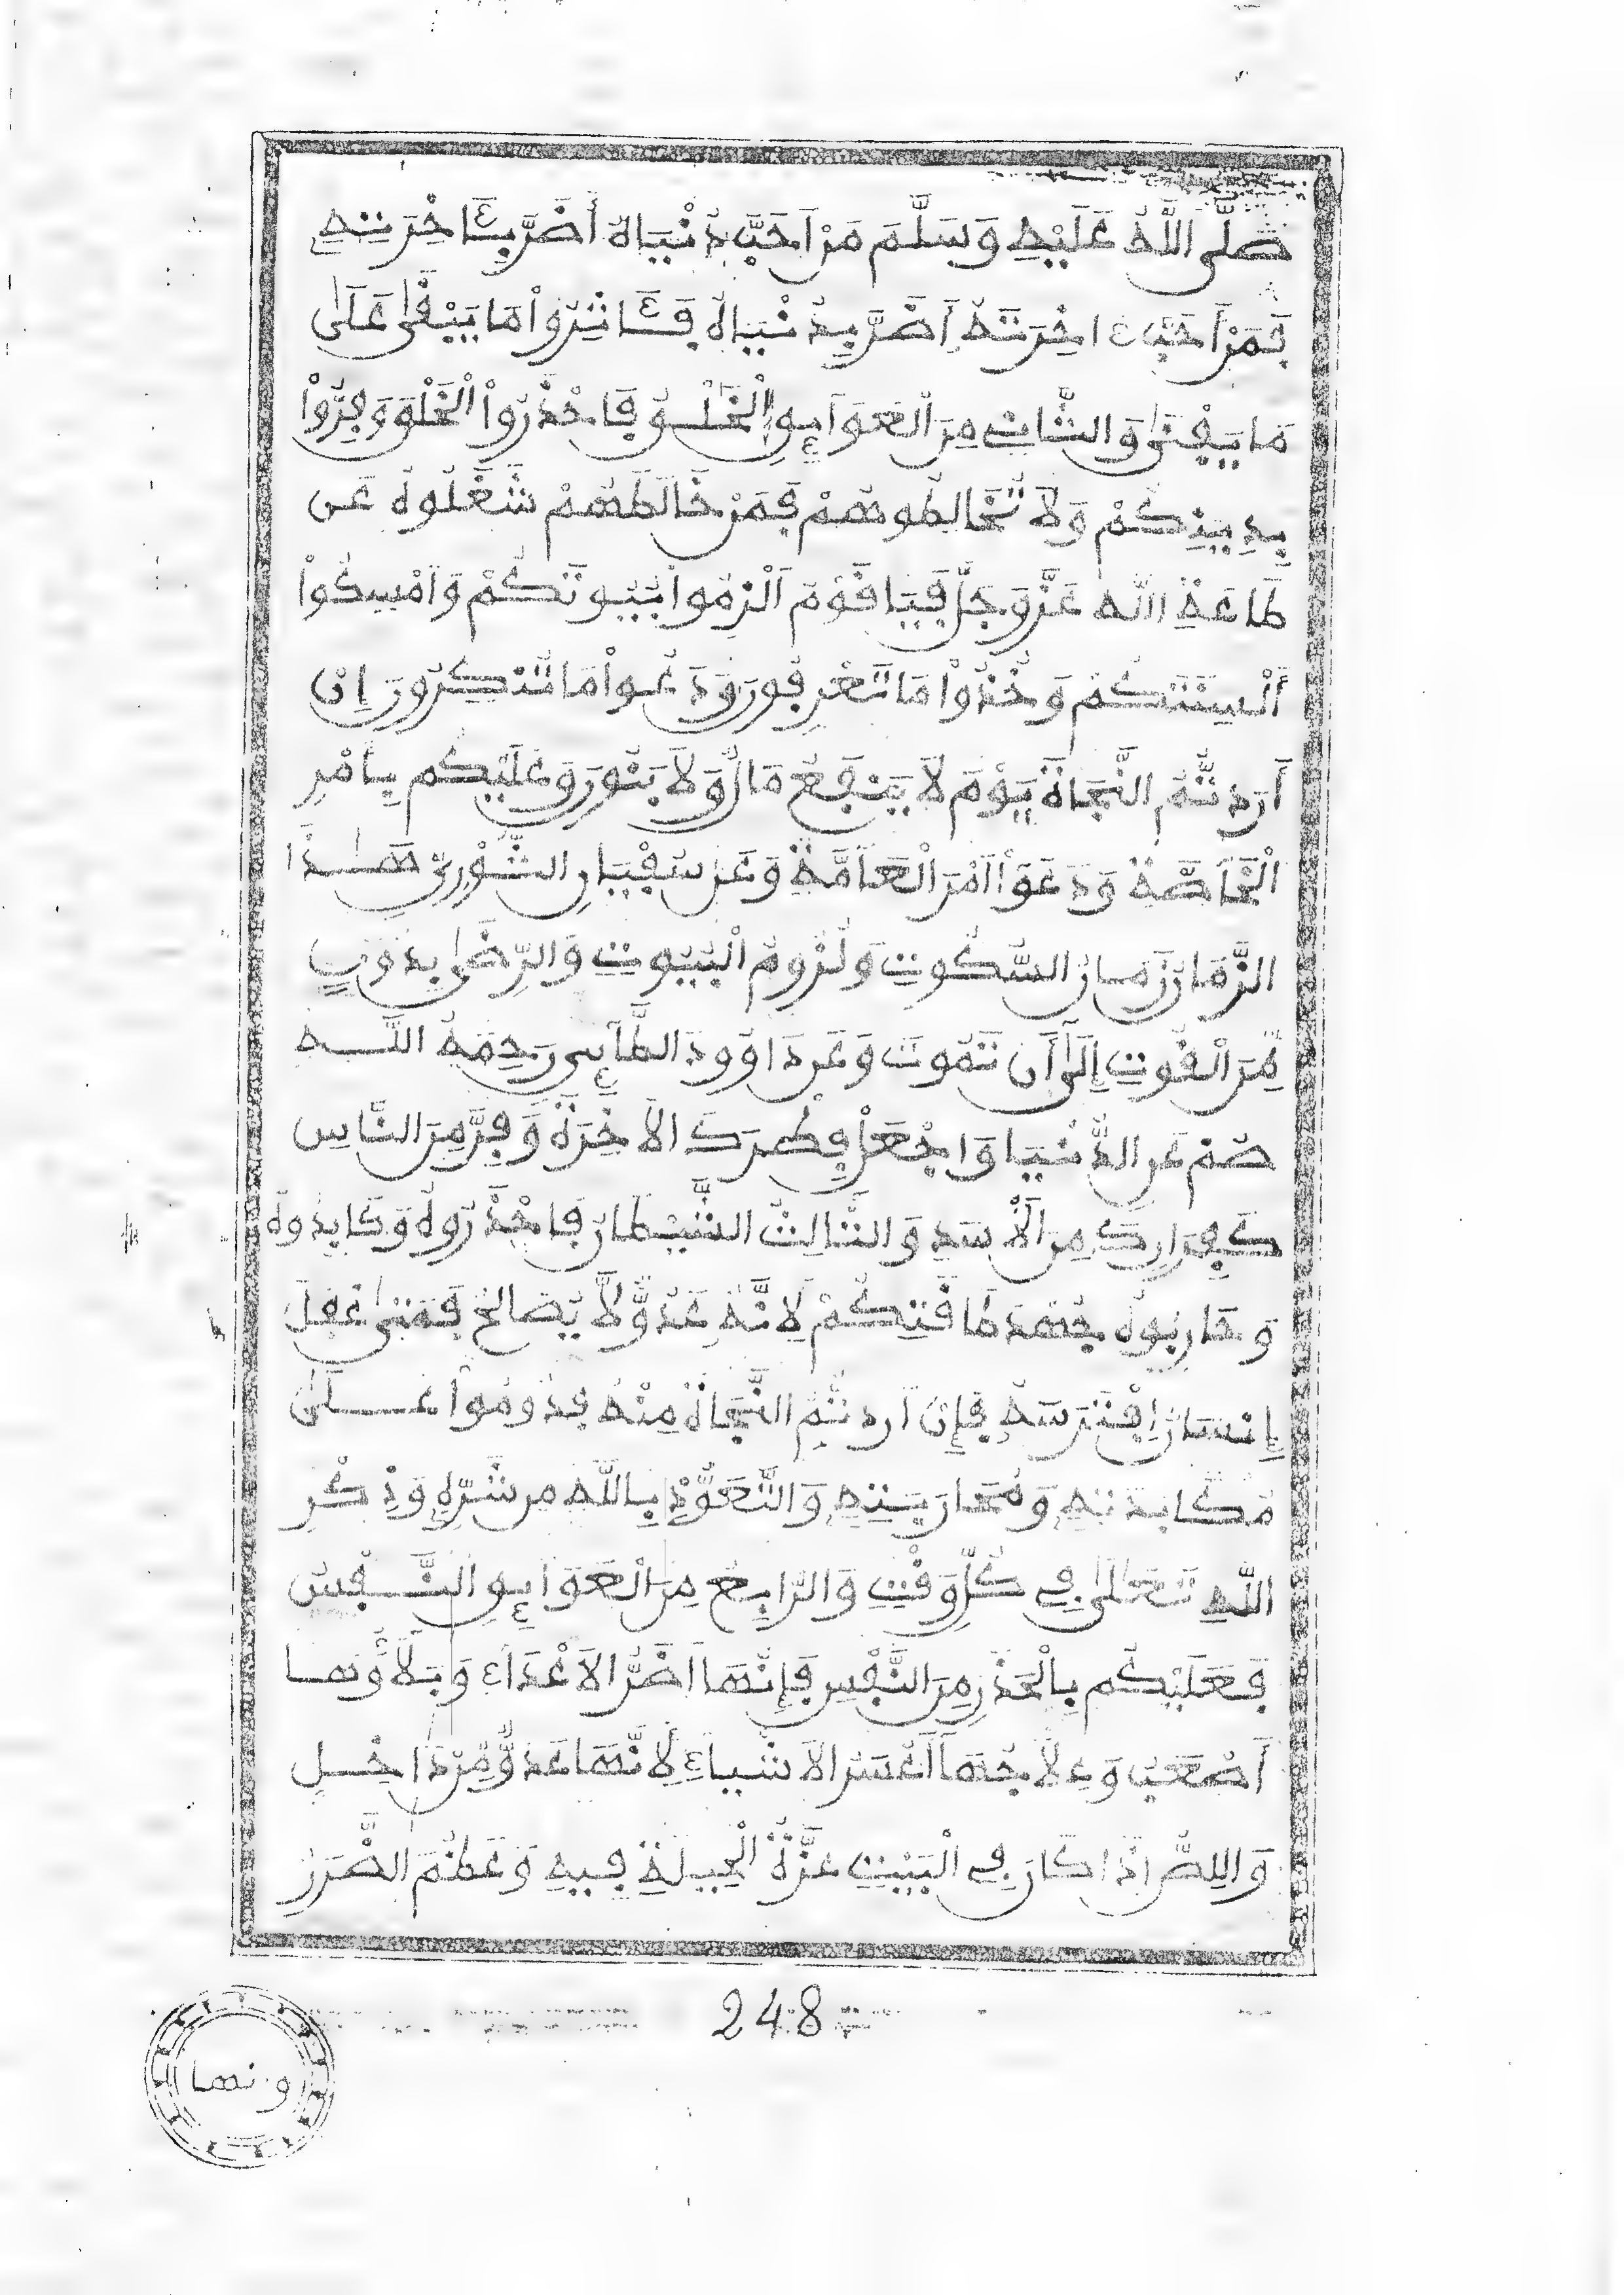 صَلَّى اللَّهُ عَلَيْهِ وَسَلَّمَ مَنْ اَحَبَّ دُنْيَاهُ أَضَرَّ بِـَٔاخِرَتِهِ
فَمَنْ اَحَبَّ ءَاخِرَتَهُ أَضَرَّ بِدُنْيَاهُ فَـَٔاثِرُواْ مَا يَبْقَىٰ عَلَىٰ
مَا يَفْنَىٰ وَالثَّانِي مِنَ الْعَوَائِقِ الْخَلْقُ فَاحْذَرُواْ الْخَلْقَ وَفِرُّواْ
بِدِينِكُمْ وَلَا تُخَالِطُوهُمْ فَمَنْ خَالَطَهُمْ شَغَلُوهُ عَن
طَاعَةِ اللَّهِ عَزَّ وَجَلَّ فَيَا قَوْمِ اَلْزِمُوا بُيُوتَكُمْ وَأَمْسِكُواْ
أَلْسِنَتَكُمْ وَخُذُواْ مَا تَعْرِفُونَ وَدَعُواْ مَا تُنكِرُونَ إِنْ
أَرَدتُّمُ النَّجَاةَ يَوْمَ لَا يَنفَعُ مَالٌ وَلَا بَنُونَ وَعَلَيْكُم بِأَمْرِ
الْخَاصَّةِ وَدَعُواْ اَمْرَ الْعَامَّةِ وَعَن سُفْيَانَ الثَّوْرِيِّ هَـٰذَا
الزَّمَانُ زَمَانُ السُّكُوتِ وَلُزُومِ الْبُيُوتِ وَالرِّضَىٰ بِقُوتٍ
مِّنَ الْقُوتِ إِلَىٰ أَن تَمُوتَ وَعَن دَاوُودَ الطَّائِي رَحِمَهُ اللَّه
صُمْ عَنِ الدُّنْيَا وَاجْعَلْ فِطْرَكَ الآخِرَةَ وَفِرَّ مِنَ النَّاسِ
كَفِرَارِكَ مِنَ الأَسَدِ وَالثَّالِثُ الشَّيْطَانُ فَاحْذَرُوهُ وَكَابِدُوهُ
وَحَارِبُوهُ جُهْدَ طَاقَتِكُمْ لِأَنَّهُ عَدُوٌّ لَّا يُصَالِحُ فَمَتَىٰ غَفَلَ
إِنسَانٌ اِفْتَرَسَهُ فَإِنْ أَرَدتُّمُ النَّجَاةَ مِنْهُ فَدُومُواْ عَلَىٰ
مُكَابَدَتِهِ وَمُحَارَبَتِهِ وَالتَّعَوُّذِ بِاللَّهِ مِن شَرِّهِ وَذِكْرِ
اللَّهِ تَعَالَىٰ فِي كُلِّ وَقْتٍ وَالرَّابِعُ مِنَ الْعَوَائِقِ النَّفْسُ
فَعَلَيْكُم بِالْحَذَرِ مِنَ النَّفْسِ فَإِنَّهَا أَضَرُّ الأَعْدَاءِ وَبَلَاؤُهَا
أَصْعَبُ وَعِلَاجُهَا أَعْسَرُ الأَشْيَاءِ لِأَنَّهَا عَدُوٌّ مِّن دَاخِلٍ
وَاللِّصُّ إِذَا كَانَ فِي الْبَيْتِ عَزَّتُ الْحِيلَةُ فِيهِ وَعَظُمَ الضَّرَرُ
248
ونها